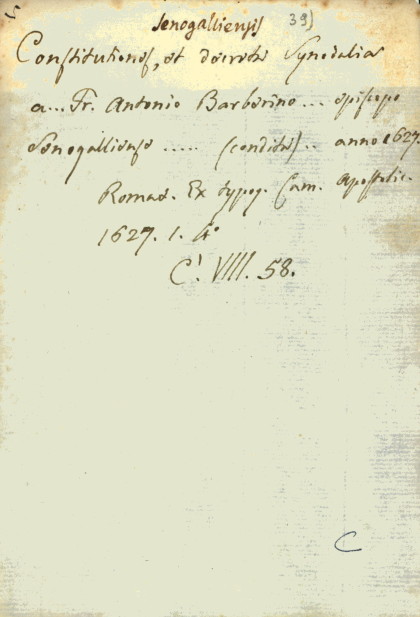 Senogalliensis 39)
Constitutiones, et decreta Synodalia
a... Fr. Antonio Barberino ... episcopo
Senogalliense ..... (condita) .. anno 1627.
Romae. Ex typog. Cam. Apostolic.
1627. 1. 4°
C! VIII. 58.
C